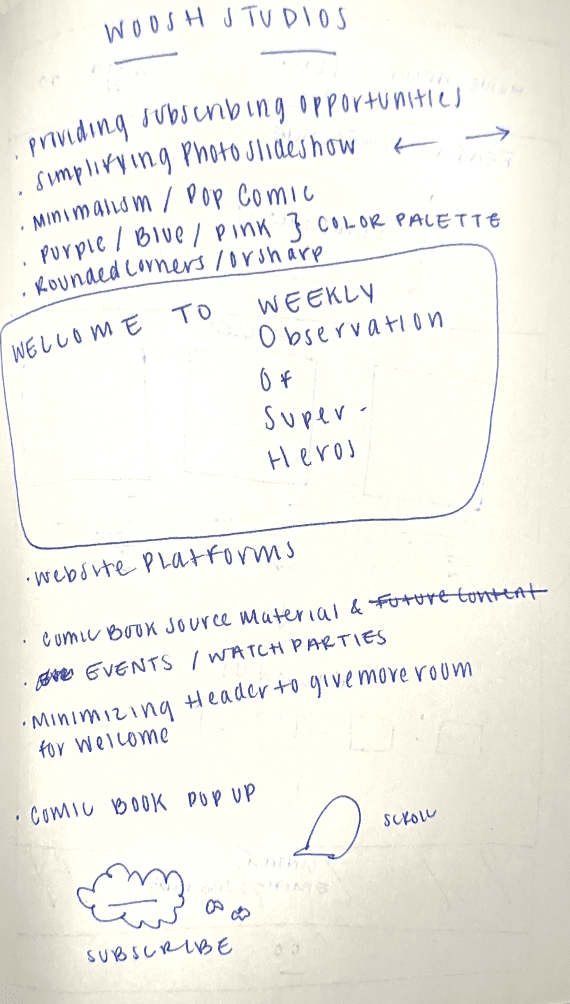 WOOSH STUDIOS
· Providing subscribing opportunities
· Simplifying Photoslideshow ← →
· Minimalism / Pop Comic
· Purple / Blue / Pink } COLOR PALETTE
· Rounded Corners / or sharp
WELCOME TO WEEKLY
Observation
Of
Super-
Heros
· Website Platforms
· Comic Book Source Material & Future Content
· EVENTS / WATCH PARTIES
· Minimizing Header to give more room
for Welcome
· COMIC BOOK POP UP
SCROLL
SUBSCRIBE